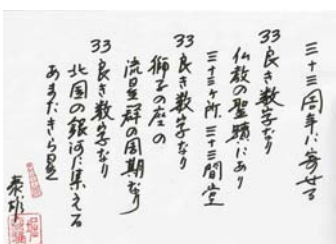 三十三周年に寄せる
33 良き数字なり
仏教の聖蹟にあり
三十三ヶ所 三十三間堂
33 良き数字なり
獅子の座の
流星群の周期なり
33 良き数字なり
北国の銀河に集える
あまたきら星
泰彬